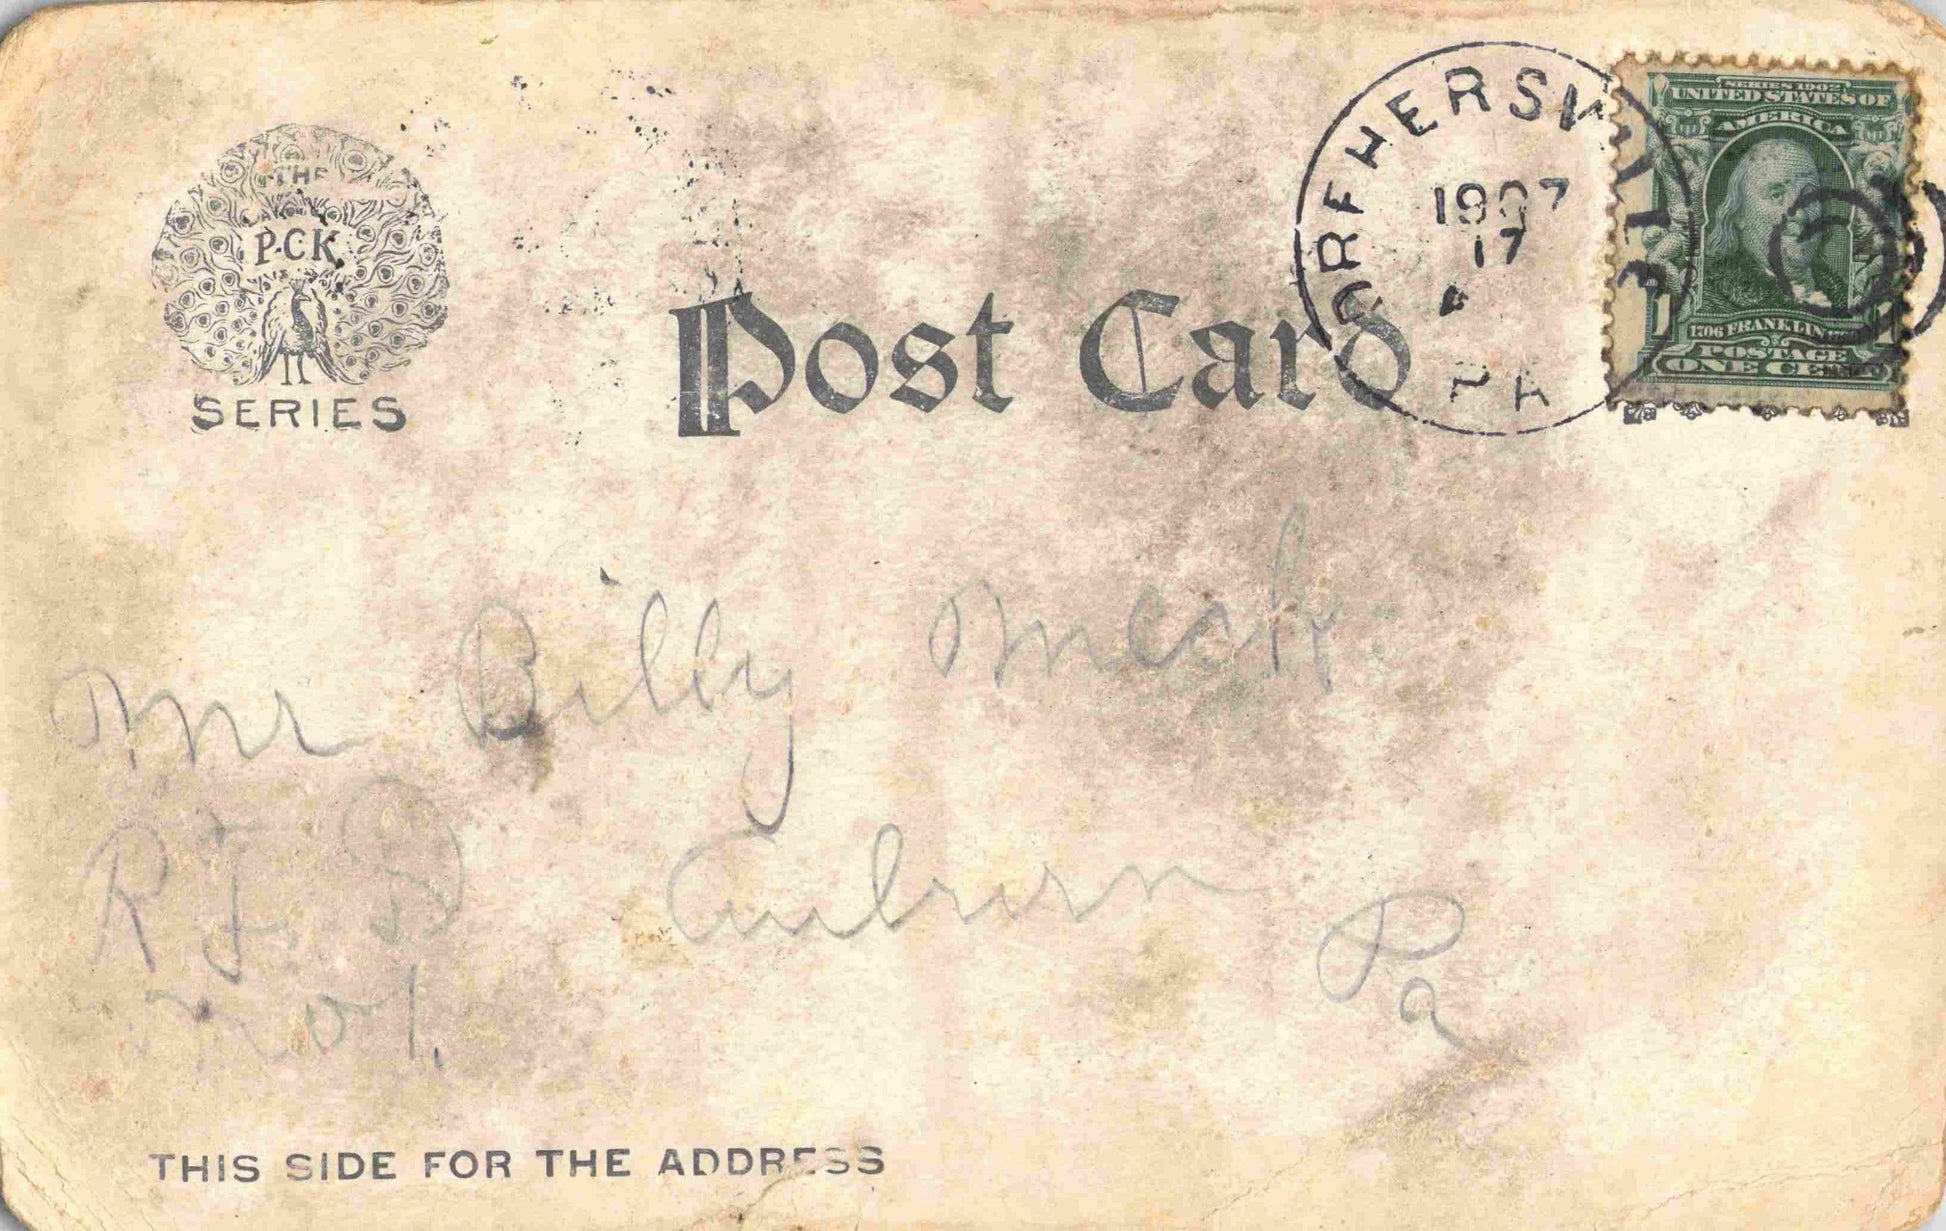 THE
P.C.K.
SERIES
Post Card
1907
17
PA
SERIES 1902
UNITED STATES OF
AMERICA
1706 FRANKLIN
POSTAGE
ONE CENT
1 1
Mr Billy
R. F. D Auburn Pa
No 1.
THIS SIDE FOR THE ADDRESS